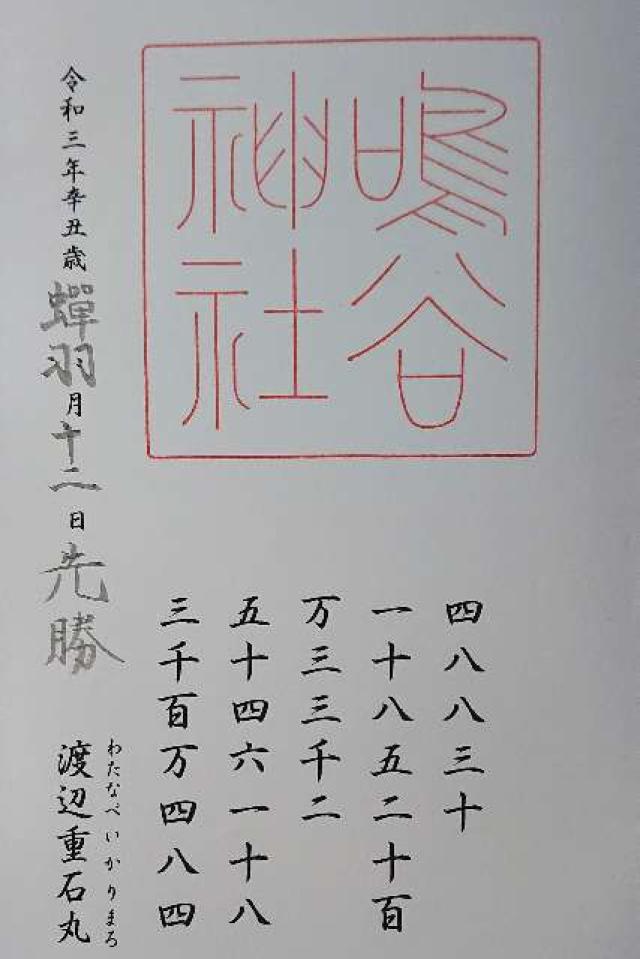 鳴谷
神社
四八八三十
一十八五二十百
万三三千二
五十四六一十八
三千百万四八四
令和三年辛丑歳 蟬羽月十二日 先勝
わたなべいかりまろ
渡辺重石丸